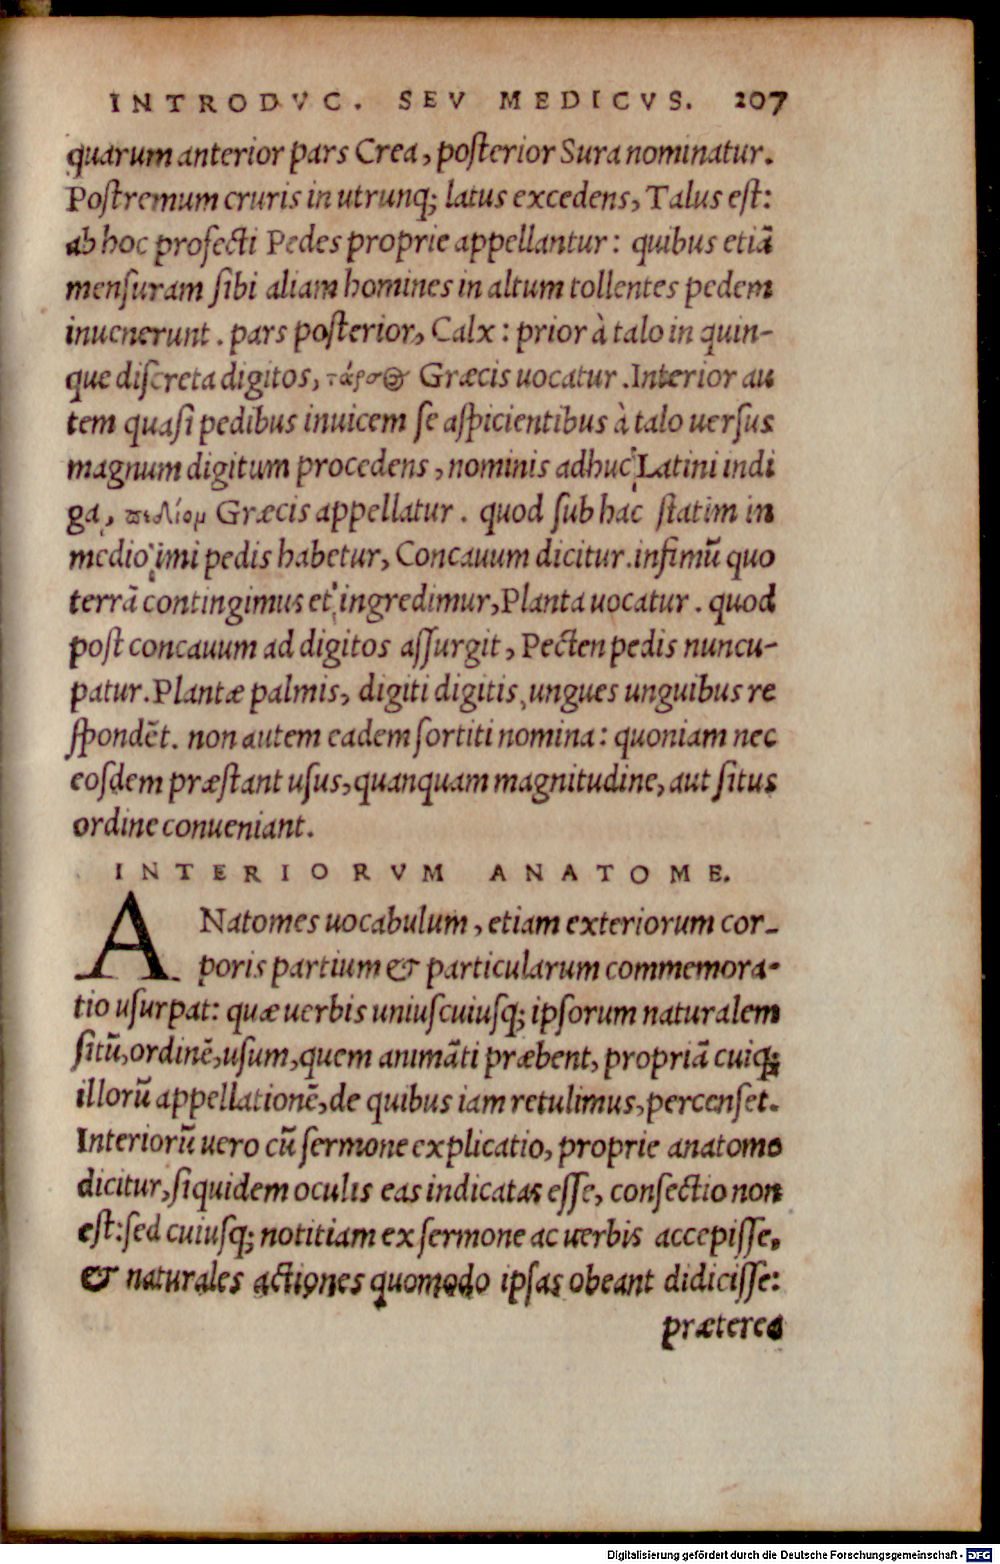 INTRODVC. SEV MEDICVS. 207
quarum anterior pars Crea, poſterior Sura nominatur.
Poſtremum cruris in utrunq; latus excedens, Talus eſt:
ab hoc profecti Pedes proprie appellantur: quibus etiã
menſuram ſibi aliam homines in altum tollentes pedem
inuenerunt. pars poſterior, Calx: prior à talo in quin-
que diſcreta digitos, τάρσος Græcis uocatur. Interior au
tem quaſi pedibus inuicem ſe aſpicientibus à talo uerſus
magnum digitum procedens, nominis adhuc Latini indi
ga, πεδίομ Græcis appellatur. quod ſub hac ſtatim in
medio imi pedis habetur, Concauum dicitur. infimũ quo
terrã contingimus et ingredimur, Planta uocatur. quod
poſt concauum ad digitos aſſurgit, Pecten pedis nuncu-
patur. Plantæ palmis, digiti digitis, ungues unguibus re
ſpondẽt. non autem eadem ſortiti nomina: quoniam nec
eoſdem præſtant uſus, quanquam magnitudine, aut ſitus
ordine conueniant.
INTERIORVM ANATOME.
ANatomes uocabulum, etiam exteriorum cor-
poris partium & particularum commemora-
tio uſurpat: quæ uerbis uniuſcuiuſq; ipſorum naturalem
ſitũ, ordinẽ, uſum, quem animãti præbent, propriã cuiq;
illorũ appellationẽ, de quibus iam retulimus, percenſet.
Interiorũ uero cũ ſermone explicatio, proprie anatome
dicitur, ſiquidem oculis eas indicatas eſſe, conſectio non
eſt: ſed cuiuſq; notitiam ex ſermone ac uerbis accepiſſe,
& naturales actiones quomodo ipſas obeant didiciſſe:
præterea
Digitalisierung gefördert durch die Deutsche Forschungsgemeinschaft - DFG